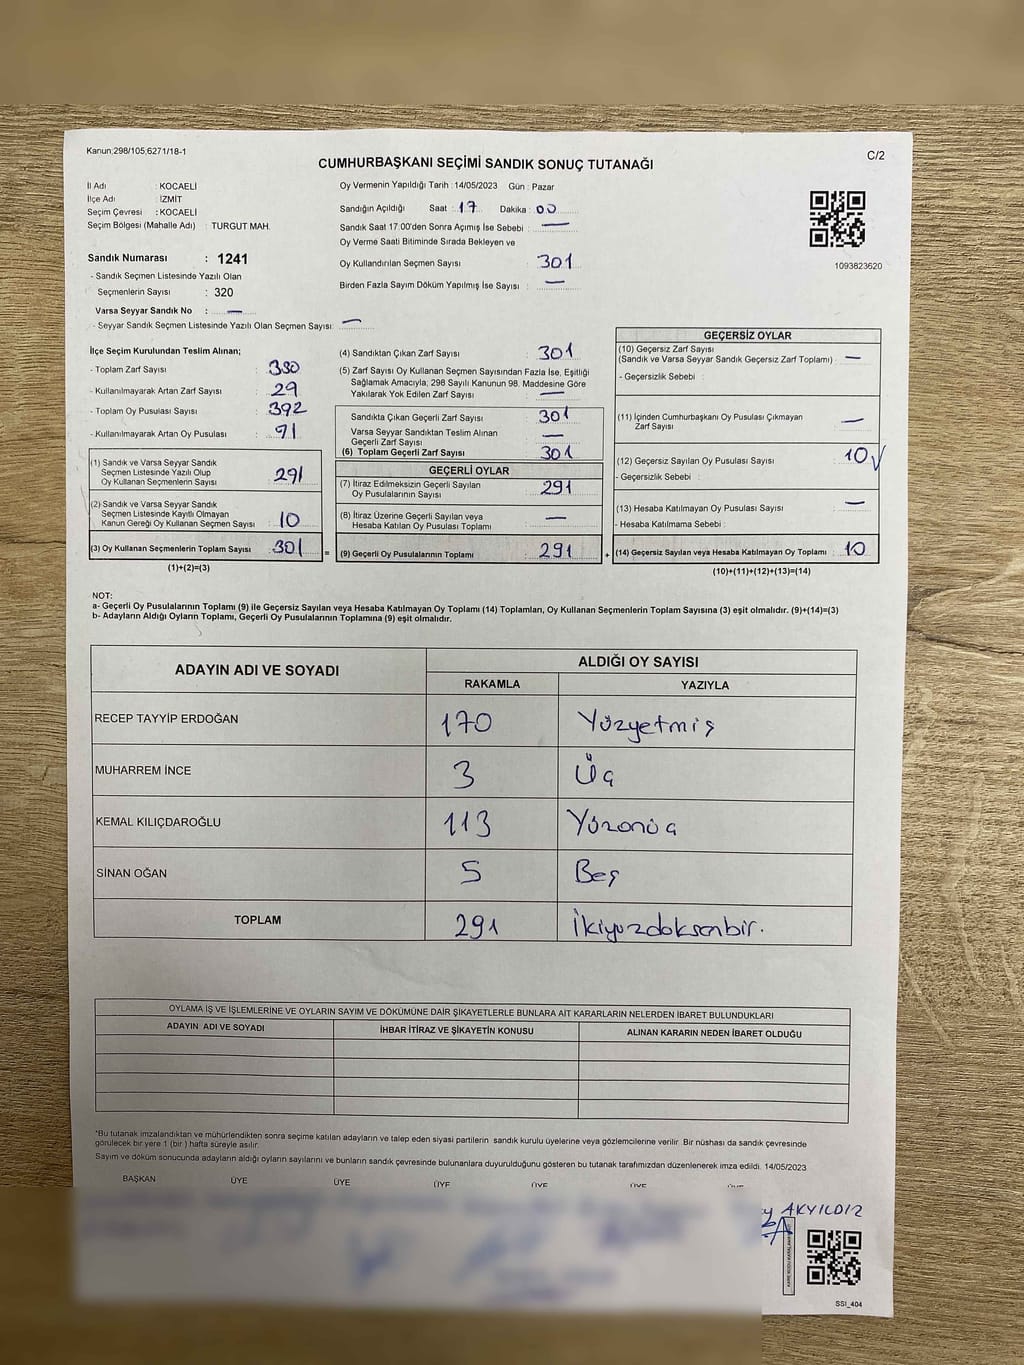 Kanun;298/105;6271/18-1
CUMHURBAŞKANI SEÇİMİ SANDIK SONUÇ TUTANAĞI
C/2
İl Adı : KOCAELİ
İlçe Adı : İZMİT
Seçim Çevresi : KOCAELİ
Seçim Bölgesi (Mahalle Adı) : TURGUT MAH.
Sandık Numarası : 1241
- Sandık Seçmen Listesinde Yazılı Olan
Seçmenlerin Sayısı : 320
Varsa Seyyar Sandık No : —
- Seyyar Sandık Seçmen Listesinde Yazılı Olan Seçmen Sayısı: —
Oy Vermenin Yapıldığı Tarih : 14/05/2023 Gün : Pazar
Sandığın Açıldığı Saat : 17 Dakika : 00
Sandık Saat 17:00'den Sonra Açımış İse Sebebi : —
Oy Verme Saati Bitiminde Sırada Bekleyen ve
Oy Kullandırılan Seçmen Sayısı : 301
Birden Fazla Sayım Döküm Yapılmış İse Sayısı : —
1093823620
İlçe Seçim Kurulundan Teslim Alınan;
- Toplam Zarf Sayısı : 330
- Kullanılmayarak Artan Zarf Sayısı : 29
- Toplam Oy Pusulası Sayısı : 392
- Kullanılmayarak Artan Oy Pusulası : 91
(1) Sandık ve Varsa Seyyar Sandık
Seçmen Listesinde Yazılı Olup
Oy Kullanan Seçmenlerin Sayısı : 291
(2) Sandık ve Varsa Seyyar Sandık
Seçmen Listesinde Kayıtlı Olmayan
Kanun Gereği Oy Kullanan Seçmen Sayısı : 10
(3) Oy Kullanan Seçmenlerin Toplam Sayısı : 301
(1)+(2)=(3)
(4) Sandıktan Çıkan Zarf Sayısı : 301
(5) Zarf Sayısı Oy Kullanan Seçmen Sayısından Fazla İse, Eşitliği
Sağlamak Amacıyla; 298 Sayılı Kanunun 98. Maddesine Göre
Yakılarak Yok Edilen Zarf Sayısı : —
Sandıkta Çıkan Geçerli Zarf Sayısı : 301
Varsa Seyyar Sandıktan Teslim Alınan
Geçerli Zarf Sayısı : —
(6) Toplam Geçerli Zarf Sayısı : 301
GEÇERLİ OYLAR
(7) İtiraz Edilmeksizin Geçerli Sayılan
Oy Pusulalarının Sayısı : 291
(8) İtiraz Üzerine Geçerli Sayılan veya
Hesaba Katılan Oy Pusulası Toplamı : —
= (9) Geçerli Oy Pusulalarının Toplamı : 291
GEÇERSİZ OYLAR
(10) Geçersiz Zarf Sayısı
(Sandık ve Varsa Seyyar Sandık Geçersiz Zarf Toplamı) : —
- Geçersizlik Sebebi :
(11) İçinden Cumhurbaşkanı Oy Pusulası Çıkmayan
Zarf Sayısı : —
(12) Geçersiz Sayılan Oy Pusulası Sayısı : 10
- Geçersizlik Sebebi :
(13) Hesaba Katılmayan Oy Pusulası Sayısı : —
- Hesaba Katılmama Sebebi :
+ (14) Geçersiz Sayılan veya Hesaba Katılmayan Oy Toplamı : 10
(10)+(11)+(12)+(13)=(14)
NOT:
a- Geçerli Oy Pusulalarının Toplamı (9) ile Geçersiz Sayılan veya Hesaba Katılmayan Oy Toplamı (14) Toplamları, Oy Kullanan Seçmenlerin Toplam Sayısına (3) eşit olmalıdır. (9)+(14)=(3)
b- Adayların Aldığı Oyların Toplamı, Geçerli Oy Pusulalarının Toplamına (9) eşit olmalıdır.
ADAYIN ADI VE SOYADI ALDIĞI OY SAYISI
RAKAMLA YAZIYLA
RECEP TAYYİP ERDOĞAN 170 Yüzyetmiş
MUHARREM İNCE 3 Üç
KEMAL KILIÇDAROĞLU 113 Yüzonüç
SİNAN OĞAN 5 Beş
TOPLAM 291 İkiyüzdoksanbir.
OYLAMA İŞ VE İŞLEMLERİNE VE OYLARIN SAYIM VE DÖKÜMÜNE DAİR ŞİKAYETLERLE BUNLARA AİT KARARLARIN NELERDEN İBARET BULUNDUKLARI
ADAYIN ADI VE SOYADI İHBAR İTİRAZ VE ŞİKAYETİN KONUSU ALINAN KARARIN NEDEN İBARET OLDUĞU
*Bu tutanak imzalandıktan ve mühürlendikten sonra seçime katılan adayların ve talep eden siyasi partilerin sandık kurulu üyelerine veya gözlemcilerine verilir. Bir nüshası da sandık çevresinde
görülecek bir yere 1 (bir ) hafta süreyle asılır.
Sayım ve döküm sonucunda adayların aldığı oyların sayılarını ve bunların sandık çevresinde bulunanlara duyurulduğunu gösteren bu tutanak tarafımızdan düzenlenerek imza edildi. 14/05/2023
BAŞKAN ÜYE ÜYE ÜYE ÜYE ÜYE ÜYE
AKYILDIZ
SSI_404